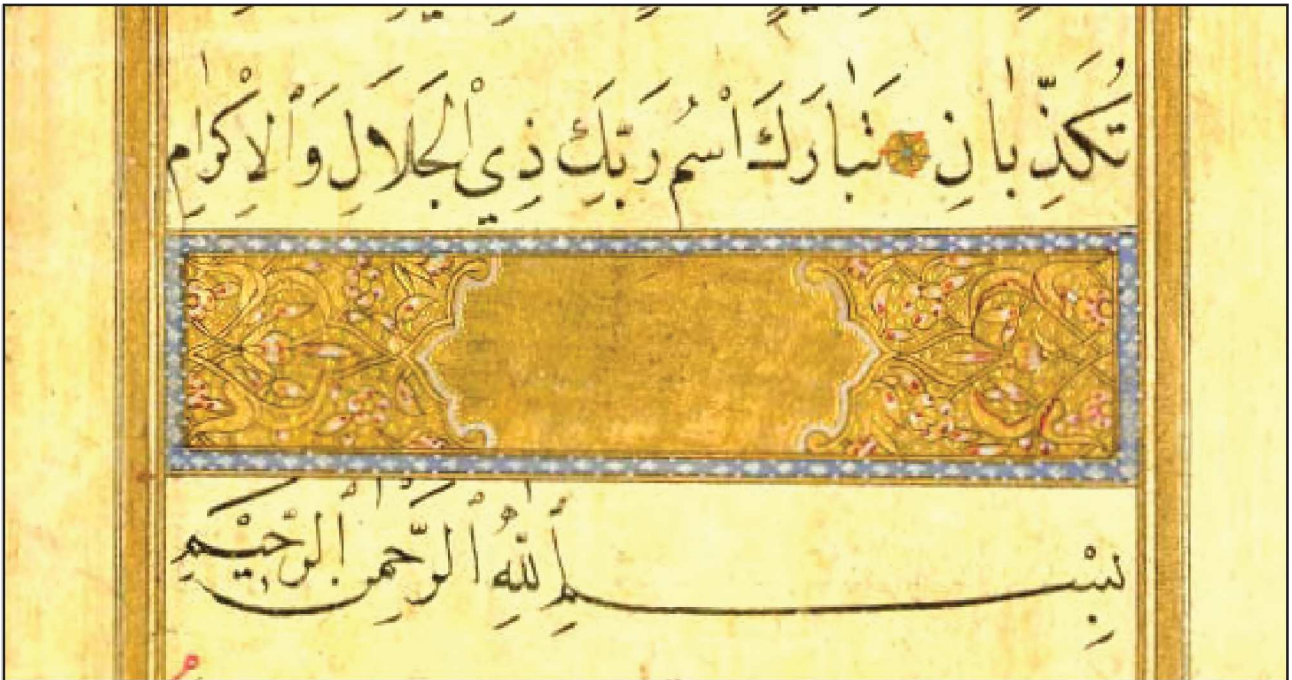 تُكَذِّبَانِ تَبَارَكَ اسْمُ رَبِّكَ ذِي الْجَلَالِ وَالْإِكْرَامِ
بِسْمِ اللَّهِ الرَّحْمَنِ الرَّحِيمِ